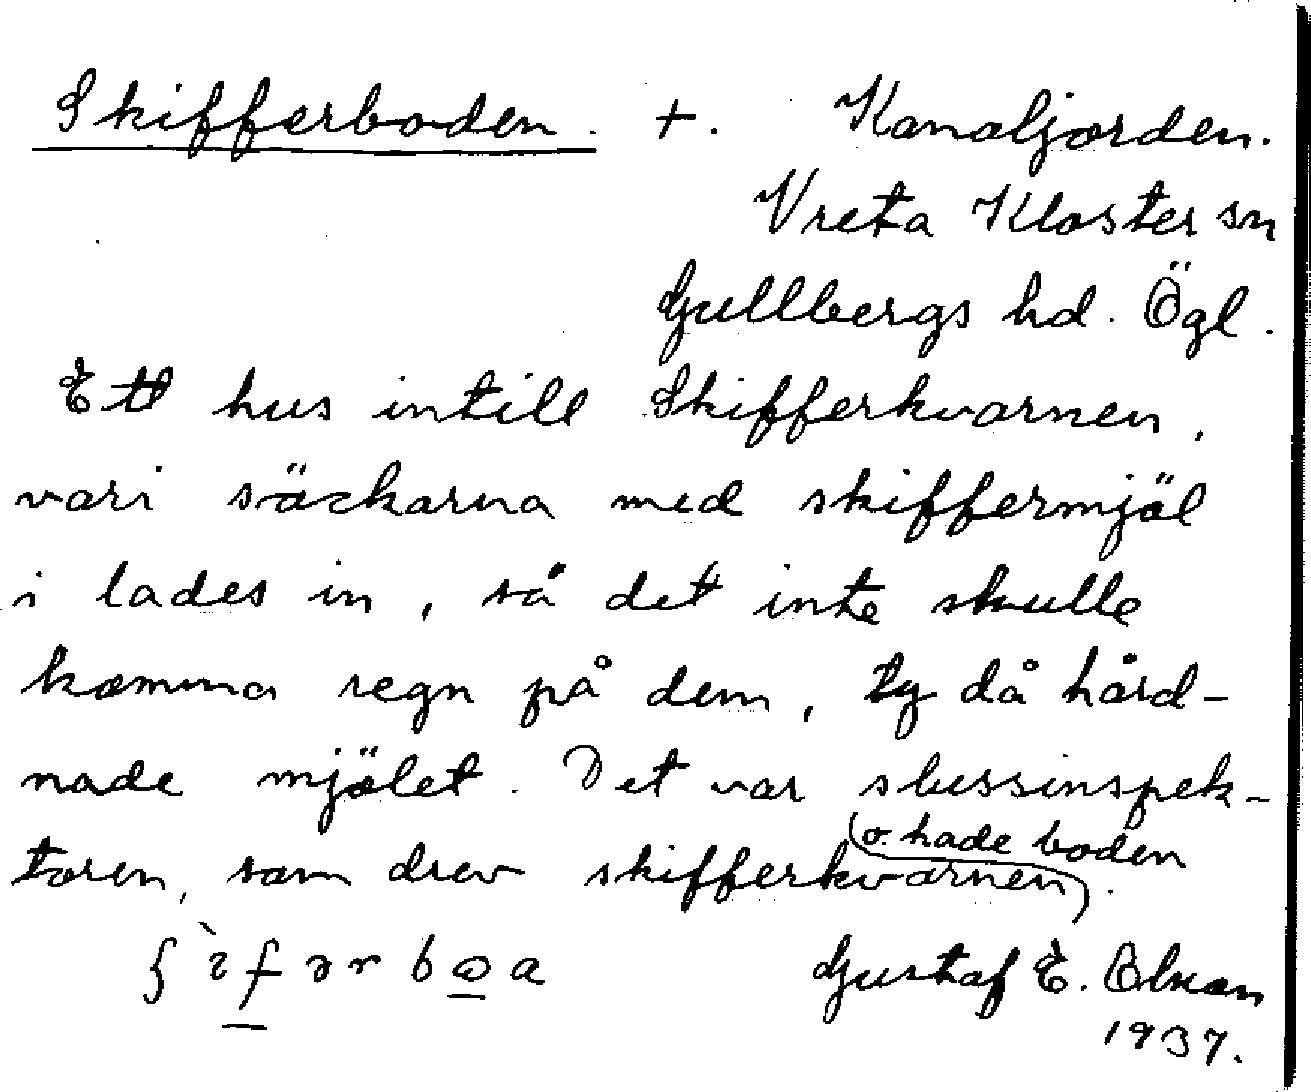 Skifferboden. +. Kanaljorden.
Vreta Kloster sn
Gullbergs hd. Ögl.
Ett hus intill Skifferkvarnen,
vari säckarna med skiffermjöl
i lades in, så det inte skulle
komma regn på dem, ty då hård-
nade mjölet. Det var slussinspek-
o. hade boden
toren, som drev skifferkvarnen.
Gustaf E. Olson
1937.